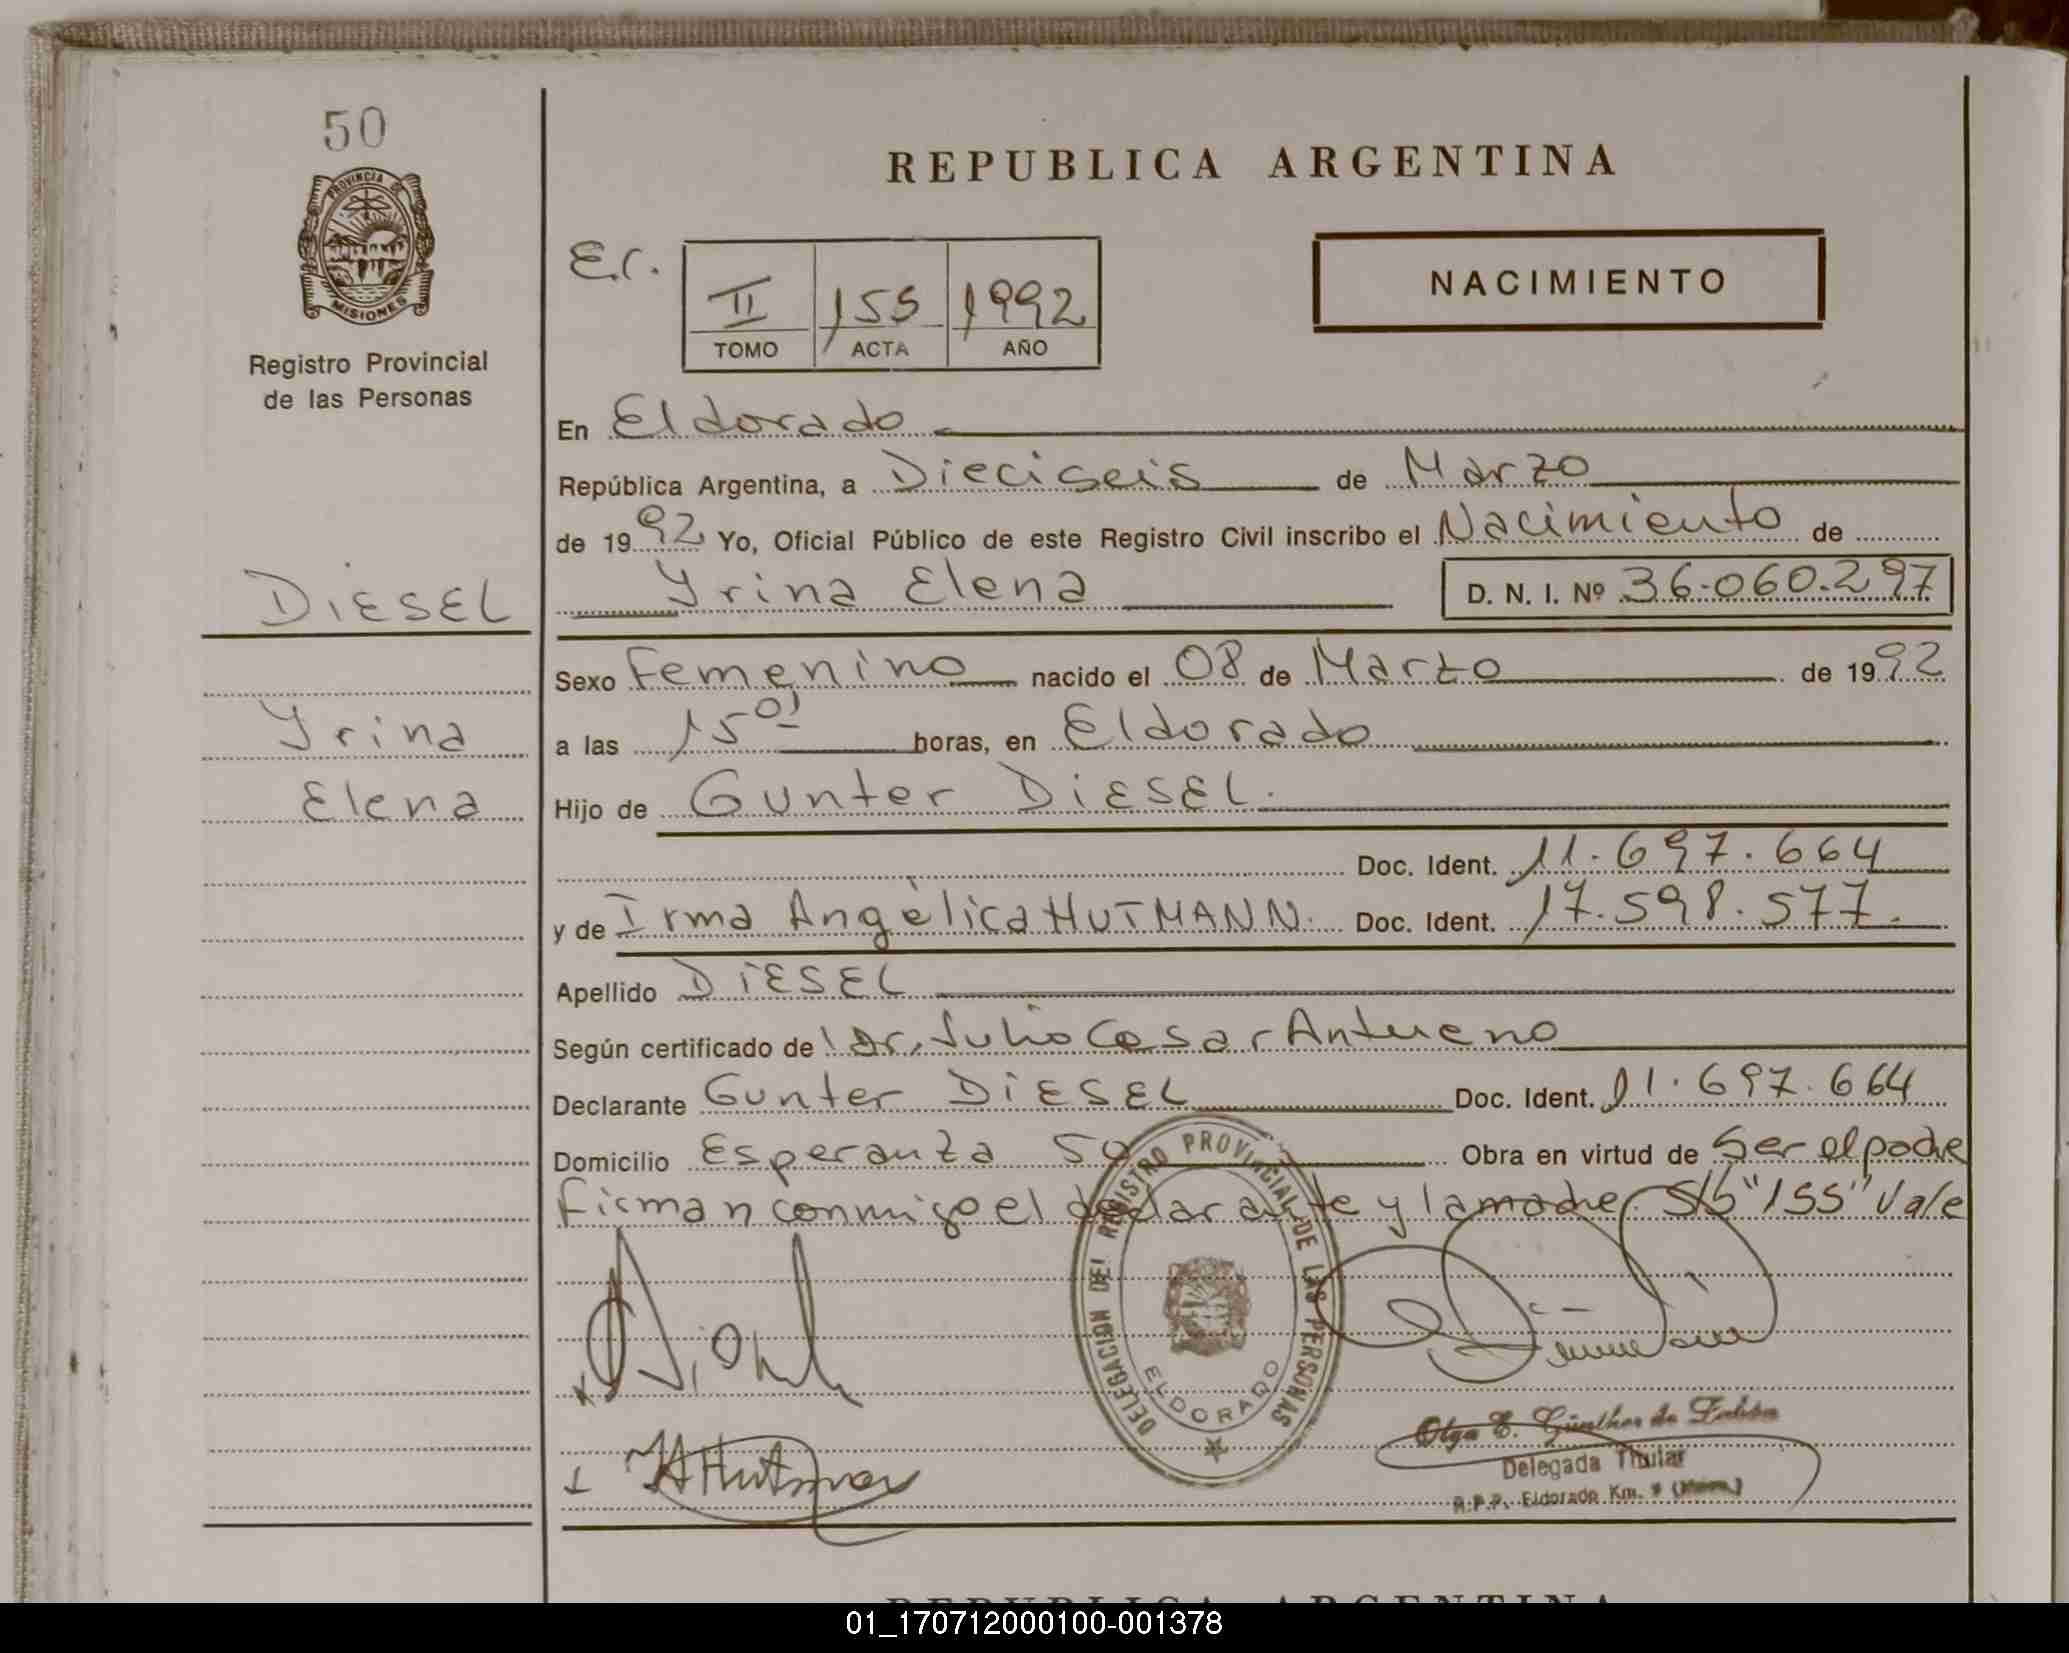 50
PROVINCIA DE
MISIONES
Registro Provincial
de las Personas
DIESEL
Yrina
Elena
REPUBLICA ARGENTINA
E.C.
II 155 1992
TOMO ACTA AÑO
NACIMIENTO
En Eldorado
República Argentina, a Dieciseis de Marzo
de 1992 Yo, Oficial Público de este Registro Civil inscribo el Nacimiento de
Yrina Elena D. N. I. Nº 36.060.297
Sexo Femenino nacido el 08 de Marzo de 1992
a las 15 01 horas, en Eldorado
Hijo de Gunter DIESEL.
Doc. Ident. 11.697.664
y de Irma Angélica HUTMANN. Doc. Ident. 17.598.577.
Apellido DIESEL
Según certificado de Dr. Julio Cesar Antueno
Declarante Gunter DIESEL Doc. Ident. 11.697.664
Domicilio Esperanza 50 Obra en virtud de Ser el padre
Firman conmigo el declarante y la madre. S/b "155" Vale
DELEGACION DEL REGISTRO PROVINCIAL DE LAS PERSONAS
ELDORADO
HHutman
Olga E. Günther de
Delegada Titular
R.P.P. Eldorado Km.
REPUBLICA ARGENTINA
01_170712000100-001378